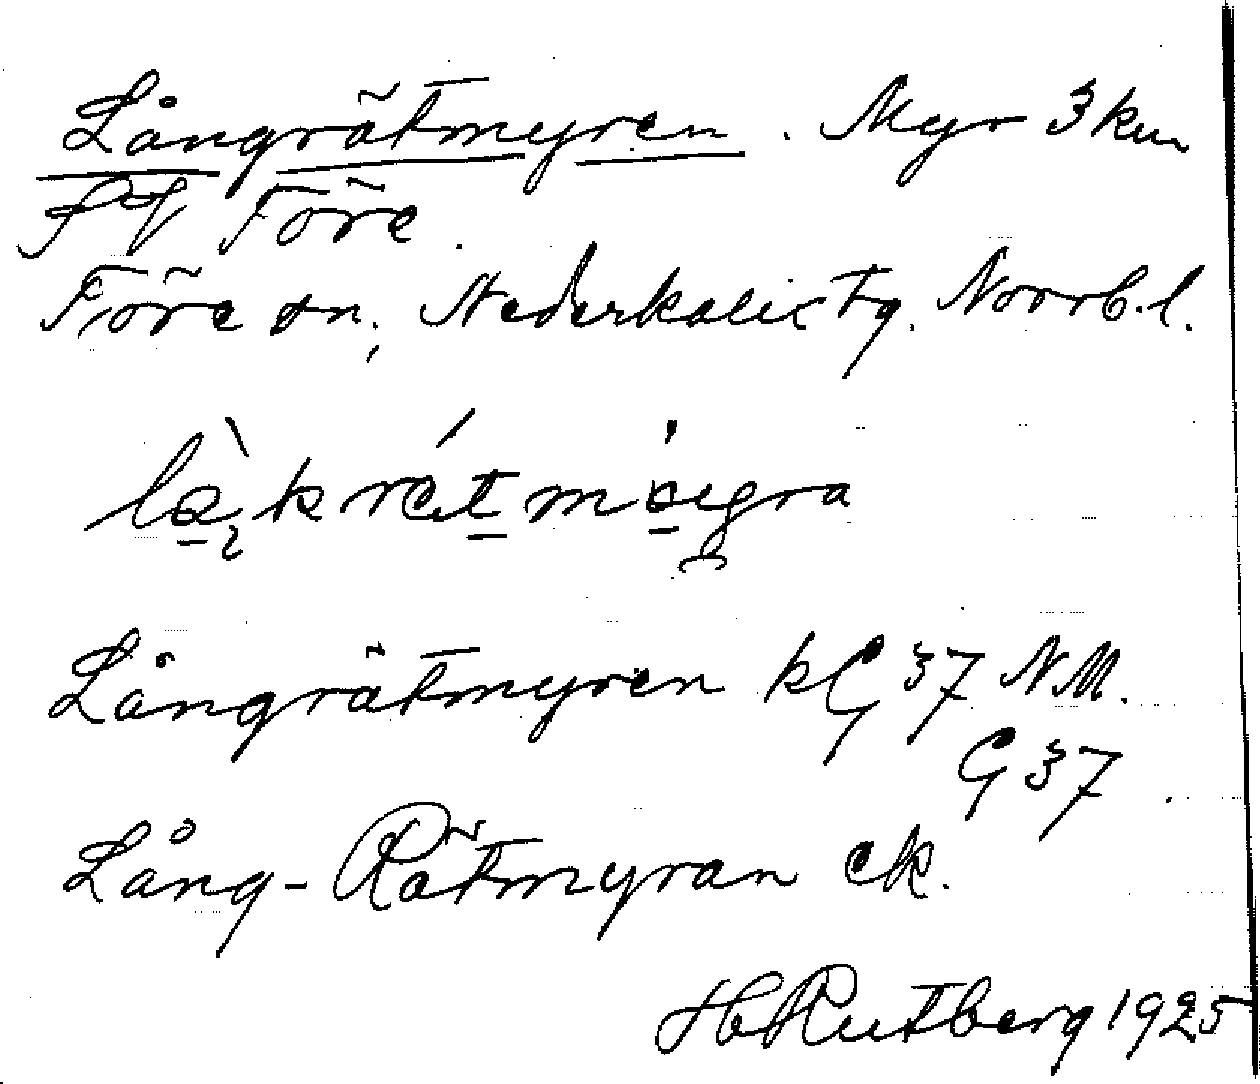 Långrätmyren. Myr 3 km
SV Före.
Före on, Nederkalix tg. Norrb. l.
Långrätmyren kG 37 NM.
G 37.
Lång-Rätmyran ek.
H Rutberg 1925